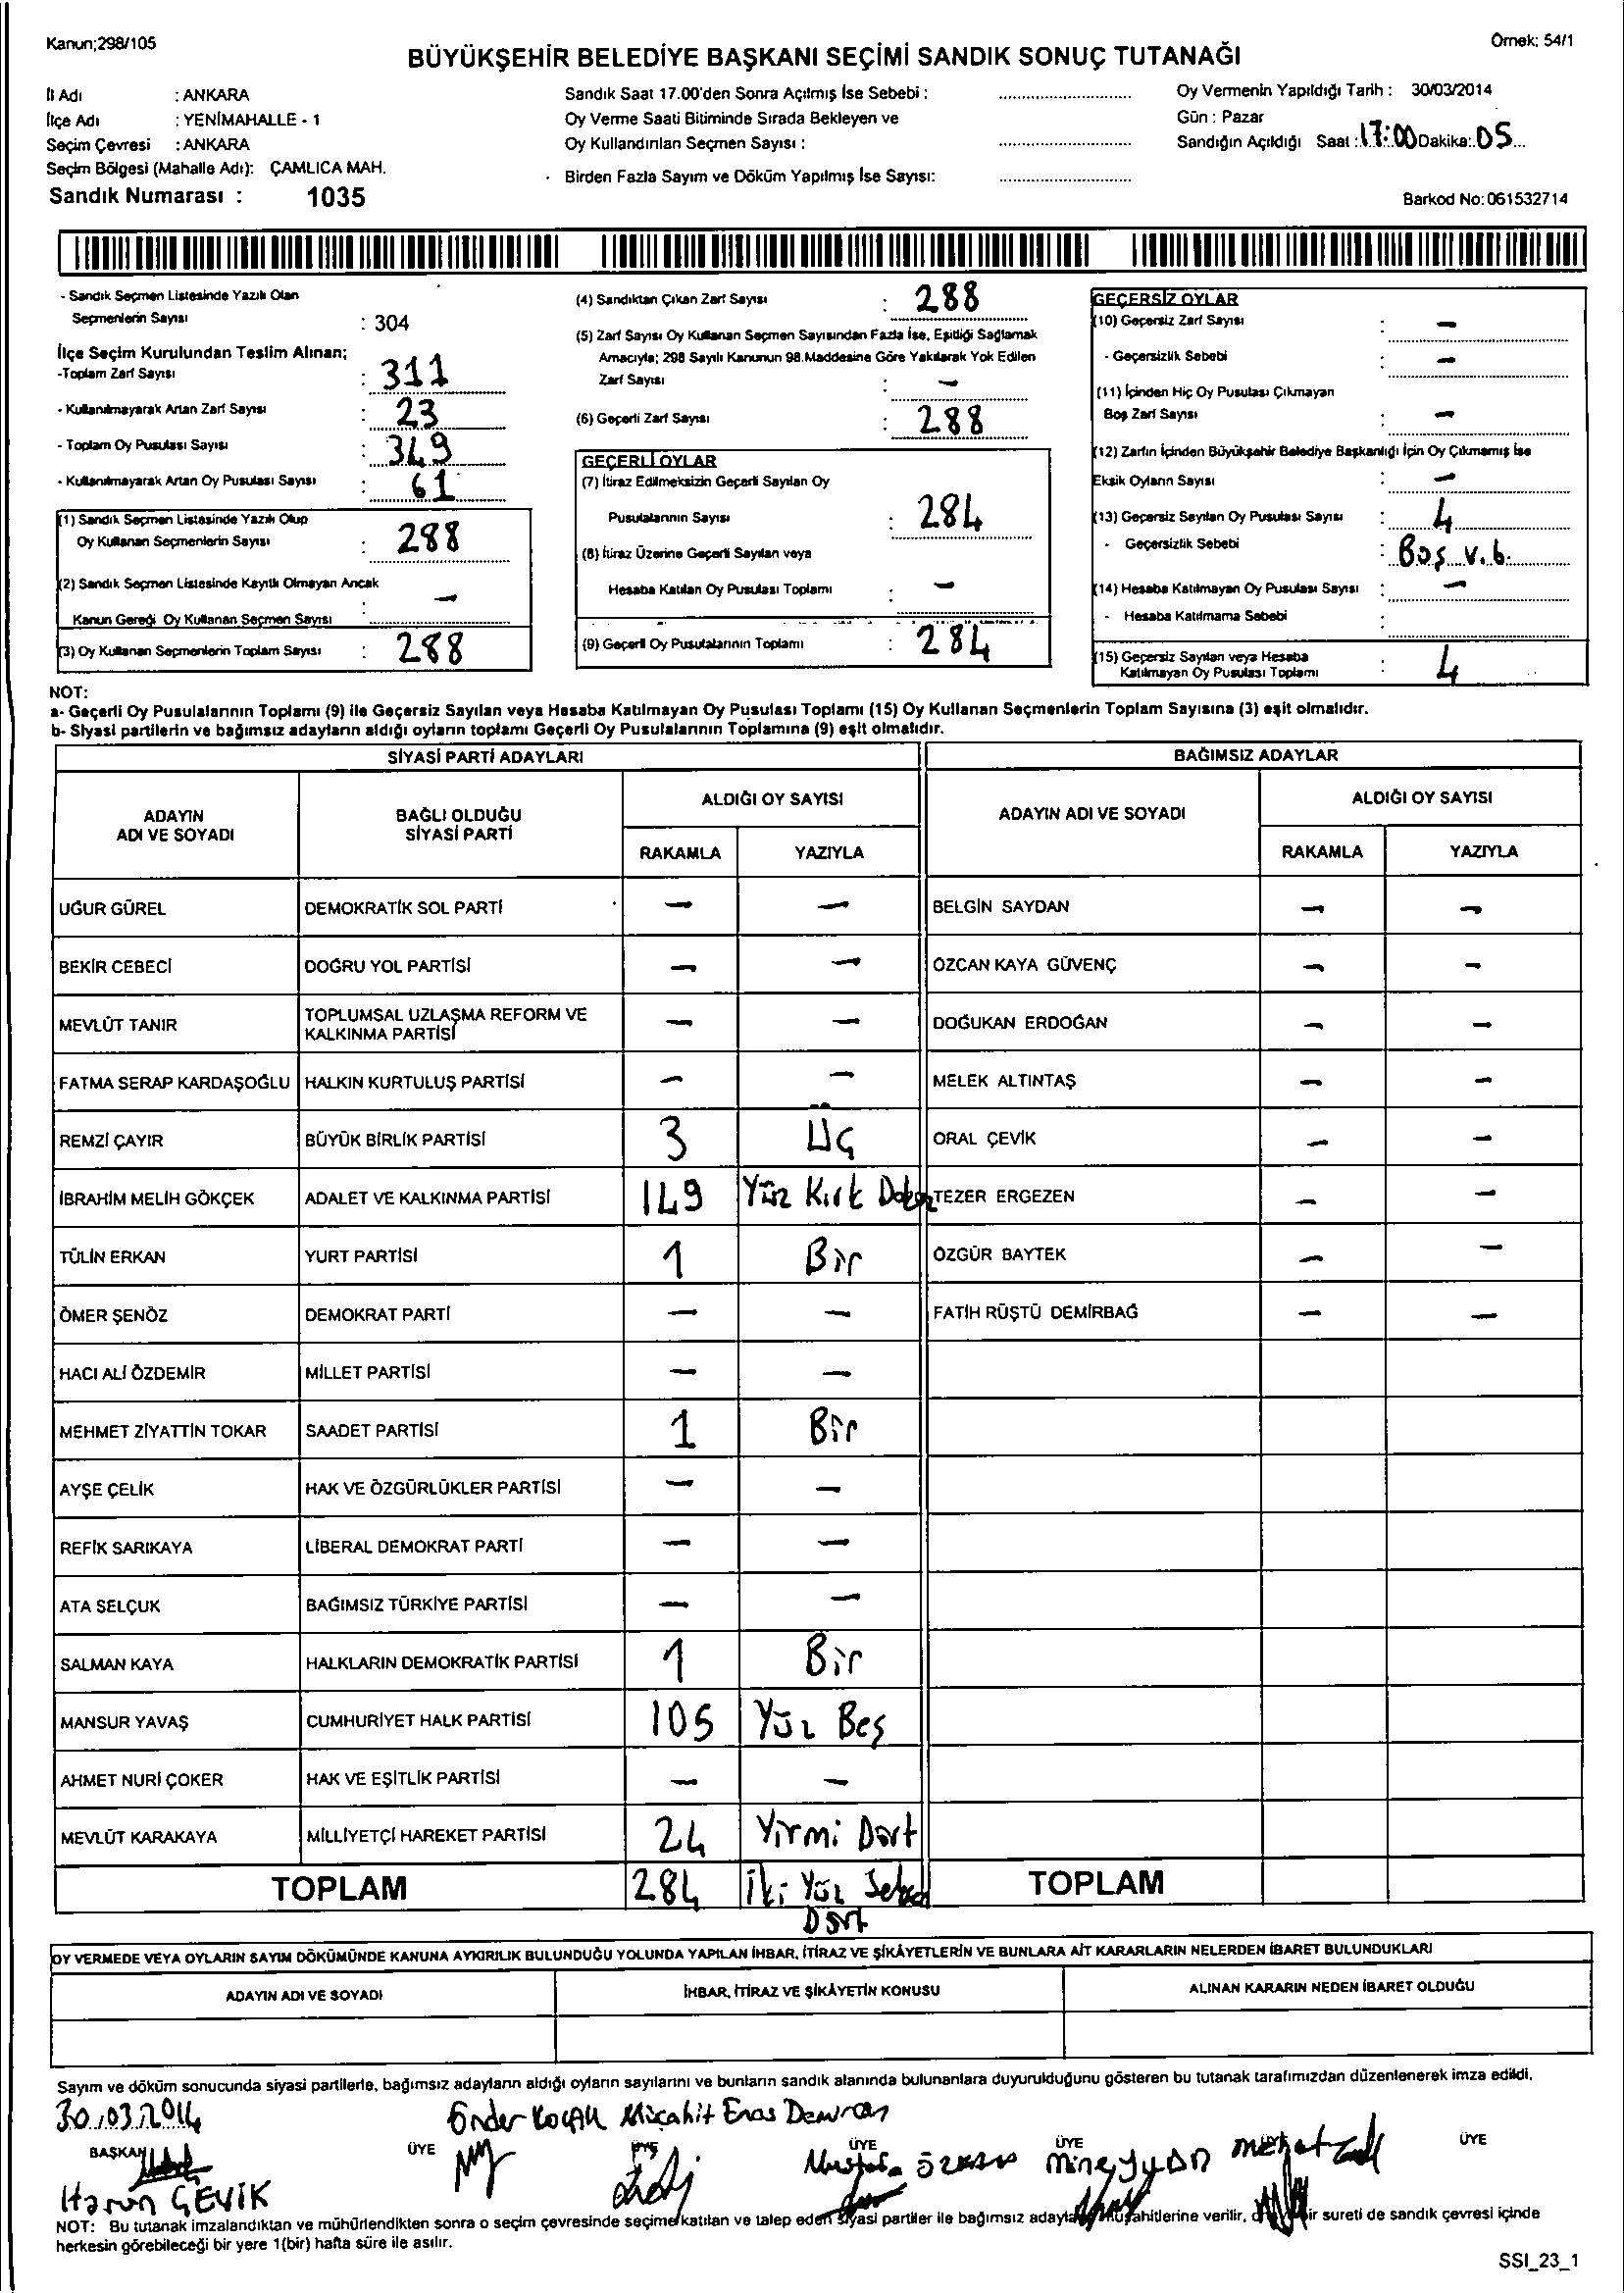 Kanun;298/105
Örnek: 54/1
BÜYÜKŞEHİR BELEDİYE BAŞKANI SEÇİMİ SANDIK SONUÇ TUTANAĞI
İl Adı : ANKARA
İlçe Adı : YENİMAHALLE - 1
Seçim Çevresi : ANKARA
Seçim Bölgesi (Mahalle Adı): ÇAMLICA MAH.
Sandık Numarası : 1035
Sandık Saat 17.00'den Sonra Açılmış İse Sebebi :
Oy Verme Saati Bitiminde Sırada Bekleyen ve
Oy Kullandırılan Seçmen Sayısı :
Birden Fazla Sayım ve Döküm Yapılmış İse Sayısı:
Oy Vermenin Yapıldığı Tarih : 30/03/2014
Gün : Pazar
Sandığın Açıldığı Saat : 17:00 Dakika: 05
Barkod No: 061532714
- Sandık Seçmen Listesinde Yazılı Olan
Seçmenlerin Sayısı : 304
İlçe Seçim Kurulundan Teslim Alınan;
-Toplam Zarf Sayısı : 311
- Kullanılmayarak Artan Zarf Sayısı : 23
- Toplam Oy Pusulası Sayısı : 349
- Kullanılmayarak Artan Oy Pusulası Sayısı : 61
(1) Sandık Seçmen Listesinde Yazılı Olup
Oy Kullanan Seçmenlerin Sayısı : 288
(2) Sandık Seçmen Listesinde Kayıtlı Olmayan Ancak
Kanun Gereği Oy Kullanan Seçmen Sayısı : -
(3) Oy Kullanan Seçmenlerin Toplam Sayısı : 288
(4) Sandıktan Çıkan Zarf Sayısı : 288
(5) Zarf Sayısı Oy Kullanan Seçmen Sayısından Fazla İse, Eşitliği Sağlamak
Amacıyla; 298 Sayılı Kanunun 98.Maddesine Göre Yakılarak Yok Edilen
Zarf Sayısı : -
(6) Geçerli Zarf Sayısı : 288
GEÇERLİ OYLAR
(7) İtiraz Edilmeksizin Geçerli Sayılan Oy
Pusulalarının Sayısı : 284
(8) İtiraz Üzerine Geçerli Sayılan veya
Hesaba Katılan Oy Pusulası Toplamı : -
(9) Geçerli Oy Pusulalarının Toplamı : 284
GEÇERSİZ OYLAR
(10) Geçersiz Zarf Sayısı : -
- Geçersizlik Sebebi : -
(11) İçinden Hiç Oy Pusulası Çıkmayan
Boş Zarf Sayısı : -
(12) Zarfın İçinden Büyükşehir Belediye Başkanlığı İçin Oy Çıkmamış İse
Eksik Oyların Sayısı : -
(13) Geçersiz Sayılan Oy Pusulası Sayısı : 4
- Geçersizlik Sebebi : Boş v.b.
(14) Hesaba Katılmayan Oy Pusulası Sayısı : -
- Hesaba Katılmama Sebebi :
(15) Geçersiz Sayılan veya Hesaba
Katılmayan Oy Pusulası Toplamı : 4
NOT:
a- Geçerli Oy Pusulalarının Toplamı (9) ile Geçersiz Sayılan veya Hesaba Katılmayan Oy Pusulası Toplamı (15) Oy Kullanan Seçmenlerin Toplam Sayısına (3) eşit olmalıdır.
b- Siyasi partilerin ve bağımsız adayların aldığı oyların toplamı Geçerli Oy Pusulalarının Toplamına (9) eşit olmalıdır.
SİYASİ PARTİ ADAYLARI BAĞIMSIZ ADAYLAR
ADAYIN ADI VE SOYADI
BAĞLI OLDUĞU SİYASİ PARTİ
ALDIĞI OY SAYISI
RAKAMLA YAZIYLA
ADAYIN ADI VE SOYADI
ALDIĞI OY SAYISI
RAKAMLA YAZIYLA
UĞUR GÜREL DEMOKRATİK SOL PARTİ - - BELGİN SAYDAN - -
BEKİR CEBECİ DOĞRU YOL PARTİSİ - - ÖZCAN KAYA GÜVENÇ - -
MEVLÜT TANIR TOPLUMSAL UZLAŞMA REFORM VE KALKINMA PARTİSİ - - DOĞUKAN ERDOĞAN - -
FATMA SERAP KARDAŞOĞLU HALKIN KURTULUŞ PARTİSİ - - MELEK ALTINTAŞ - -
REMZİ ÇAYIR BÜYÜK BİRLİK PARTİSİ 3 Üç ORAL ÇEVİK - -
İBRAHİM MELİH GÖKÇEK ADALET VE KALKINMA PARTİSİ 149 Yüz Kırk Dokuz TEZER ERGEZEN - -
TÜLİN ERKAN YURT PARTİSİ 1 Bir ÖZGÜR BAYTEK - -
ÖMER ŞENÖZ DEMOKRAT PARTİ - - FATİH RÜŞTÜ DEMİRBAĞ - -
HACI ALİ ÖZDEMİR MİLLET PARTİSİ - -
MEHMET ZİYATTİN TOKAR SAADET PARTİSİ 1 Bir
AYŞE ÇELİK HAK VE ÖZGÜRLÜKLER PARTİSİ - -
REFİK SARIKAYA LİBERAL DEMOKRAT PARTİ - -
ATA SELÇUK BAĞIMSIZ TÜRKİYE PARTİSİ - -
SALMAN KAYA HALKLARIN DEMOKRATİK PARTİSİ 1 Bir
MANSUR YAVAŞ CUMHURİYET HALK PARTİSİ 105 Yüz Beş
AHMET NURİ ÇOKER HAK VE EŞİTLİK PARTİSİ - -
MEVLÜT KARAKAYA MİLLİYETÇİ HAREKET PARTİSİ 24 Yirmi Dört
TOPLAM 284 İki Yüz Seksen TOPLAM
Dört
OY VERMEDE VEYA OYLARIN SAYIM DÖKÜMÜNDE KANUNA AYKIRILIK BULUNDUĞU YOLUNDA YAPILAN İHBAR, İTİRAZ VE ŞİKÂYETLERİN VE BUNLARA AİT KARARLARIN NELERDEN İBARET BULUNDUKLARI
ADAYIN ADI VE SOYADI İHBAR, İTİRAZ VE ŞİKÂYETİN KONUSU ALINAN KARARIN NEDEN İBARET OLDUĞU
Sayım ve döküm sonucunda siyasi partilerle, bağımsız adayların aldığı oyların sayılarını ve bunların sandık alanında bulunanlara duyurulduğunu gösteren bu tutanak tarafımızdan düzenlenerek imza edildi.
30/03/2014 Önder Koçak Mücahit Enes
BAŞKAN ÜYE ÜYE ÜYE ÜYE ÜYE
Harun ÇEVİK Mustafa ÖZKAN
NOT: Bu tutanak imzalandıktan ve mühürlendikten sonra o seçim çevresinde seçime katılan ve talep eden siyasi partiler ile bağımsız adayların müşahitlerine verilir, bir sureti de sandık çevresi içinde
herkesin görebileceği bir yere 1(bir) hafta süre ile asılır.
SSI_23_1